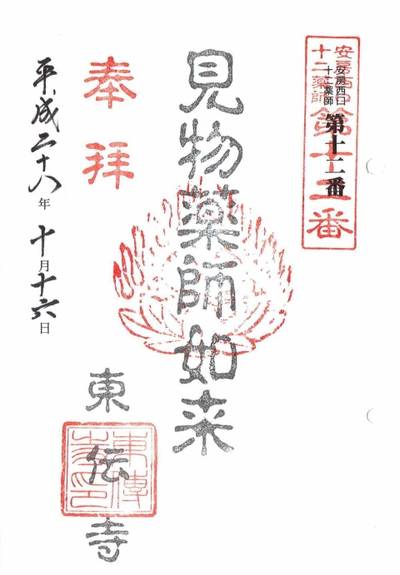 安房西口
十二薬師
第十二番
安房西口
十二薬師
第十二番
見物薬師如来
奉拝
東伝寺
平成二十八年十月十六日